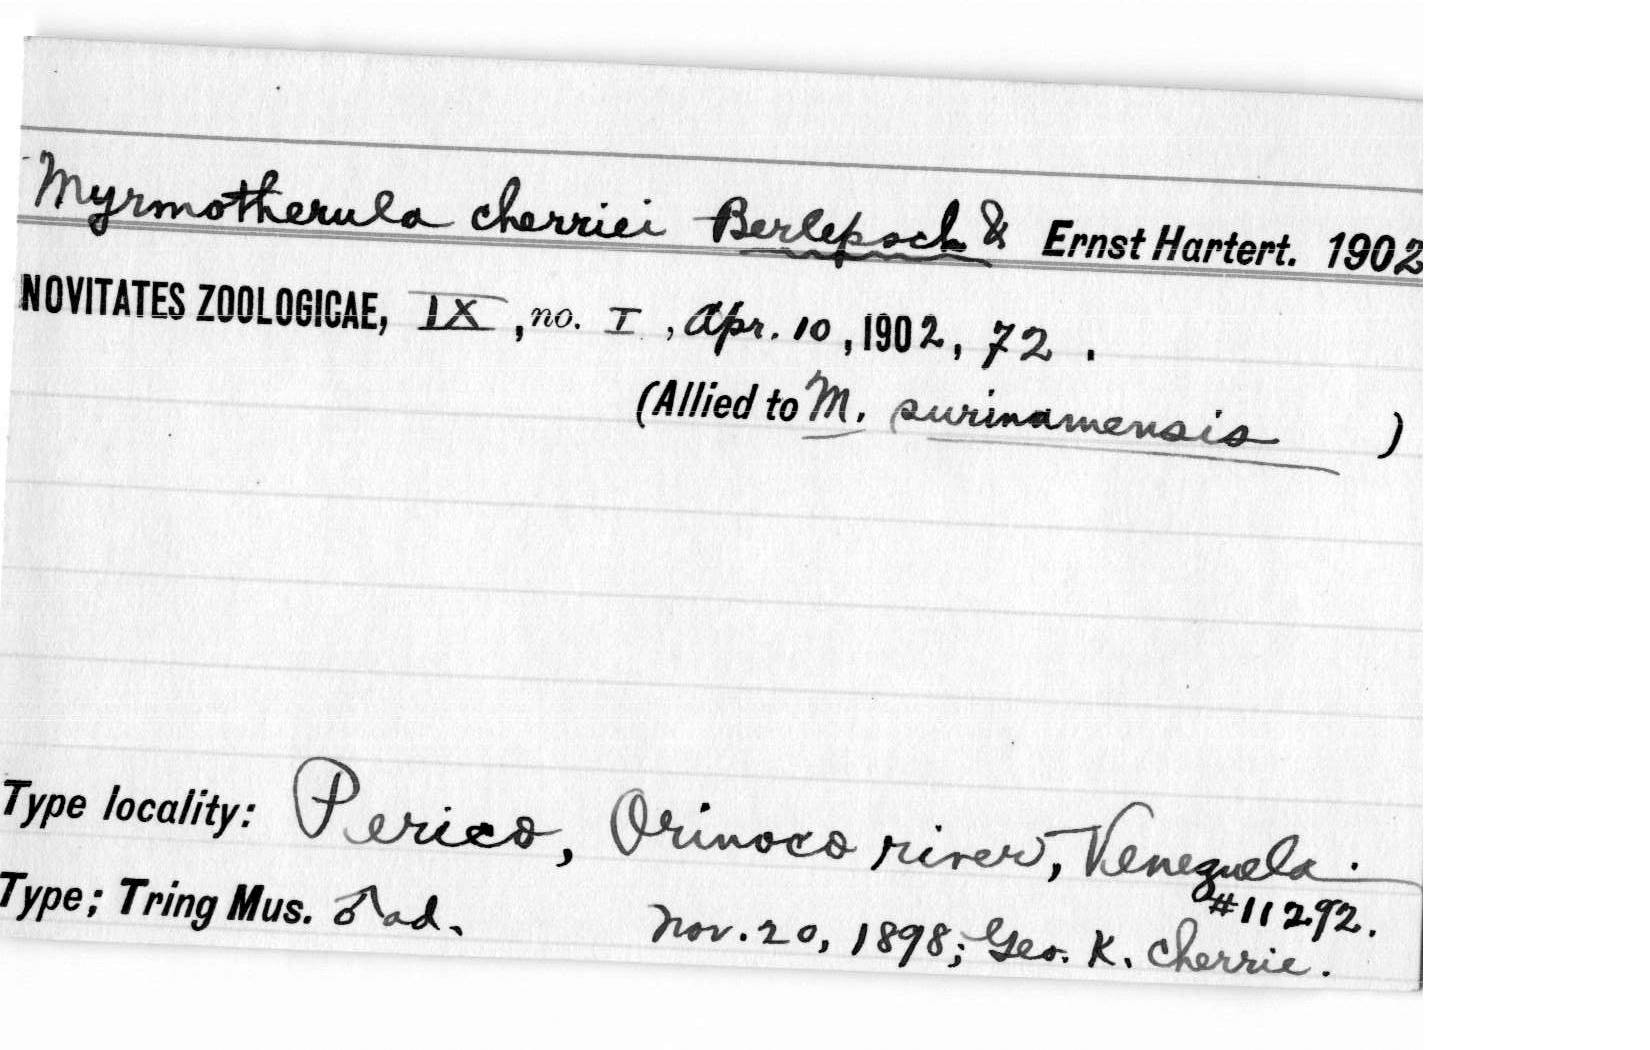 Myrmotherula cherriei Berlepsch & Ernst Hartert. 1902
NOVITATES ZOOLOGICAE, IX, no. I, Apr. 10, 1902, 72.
(Allied to M. surinamensis )
Type locality: Perico, Orinoco river, Venezuela.
#11292.
Type; Tring Mus. ♂ ad. Nov. 20, 1898; Geo. K. Cherrie.